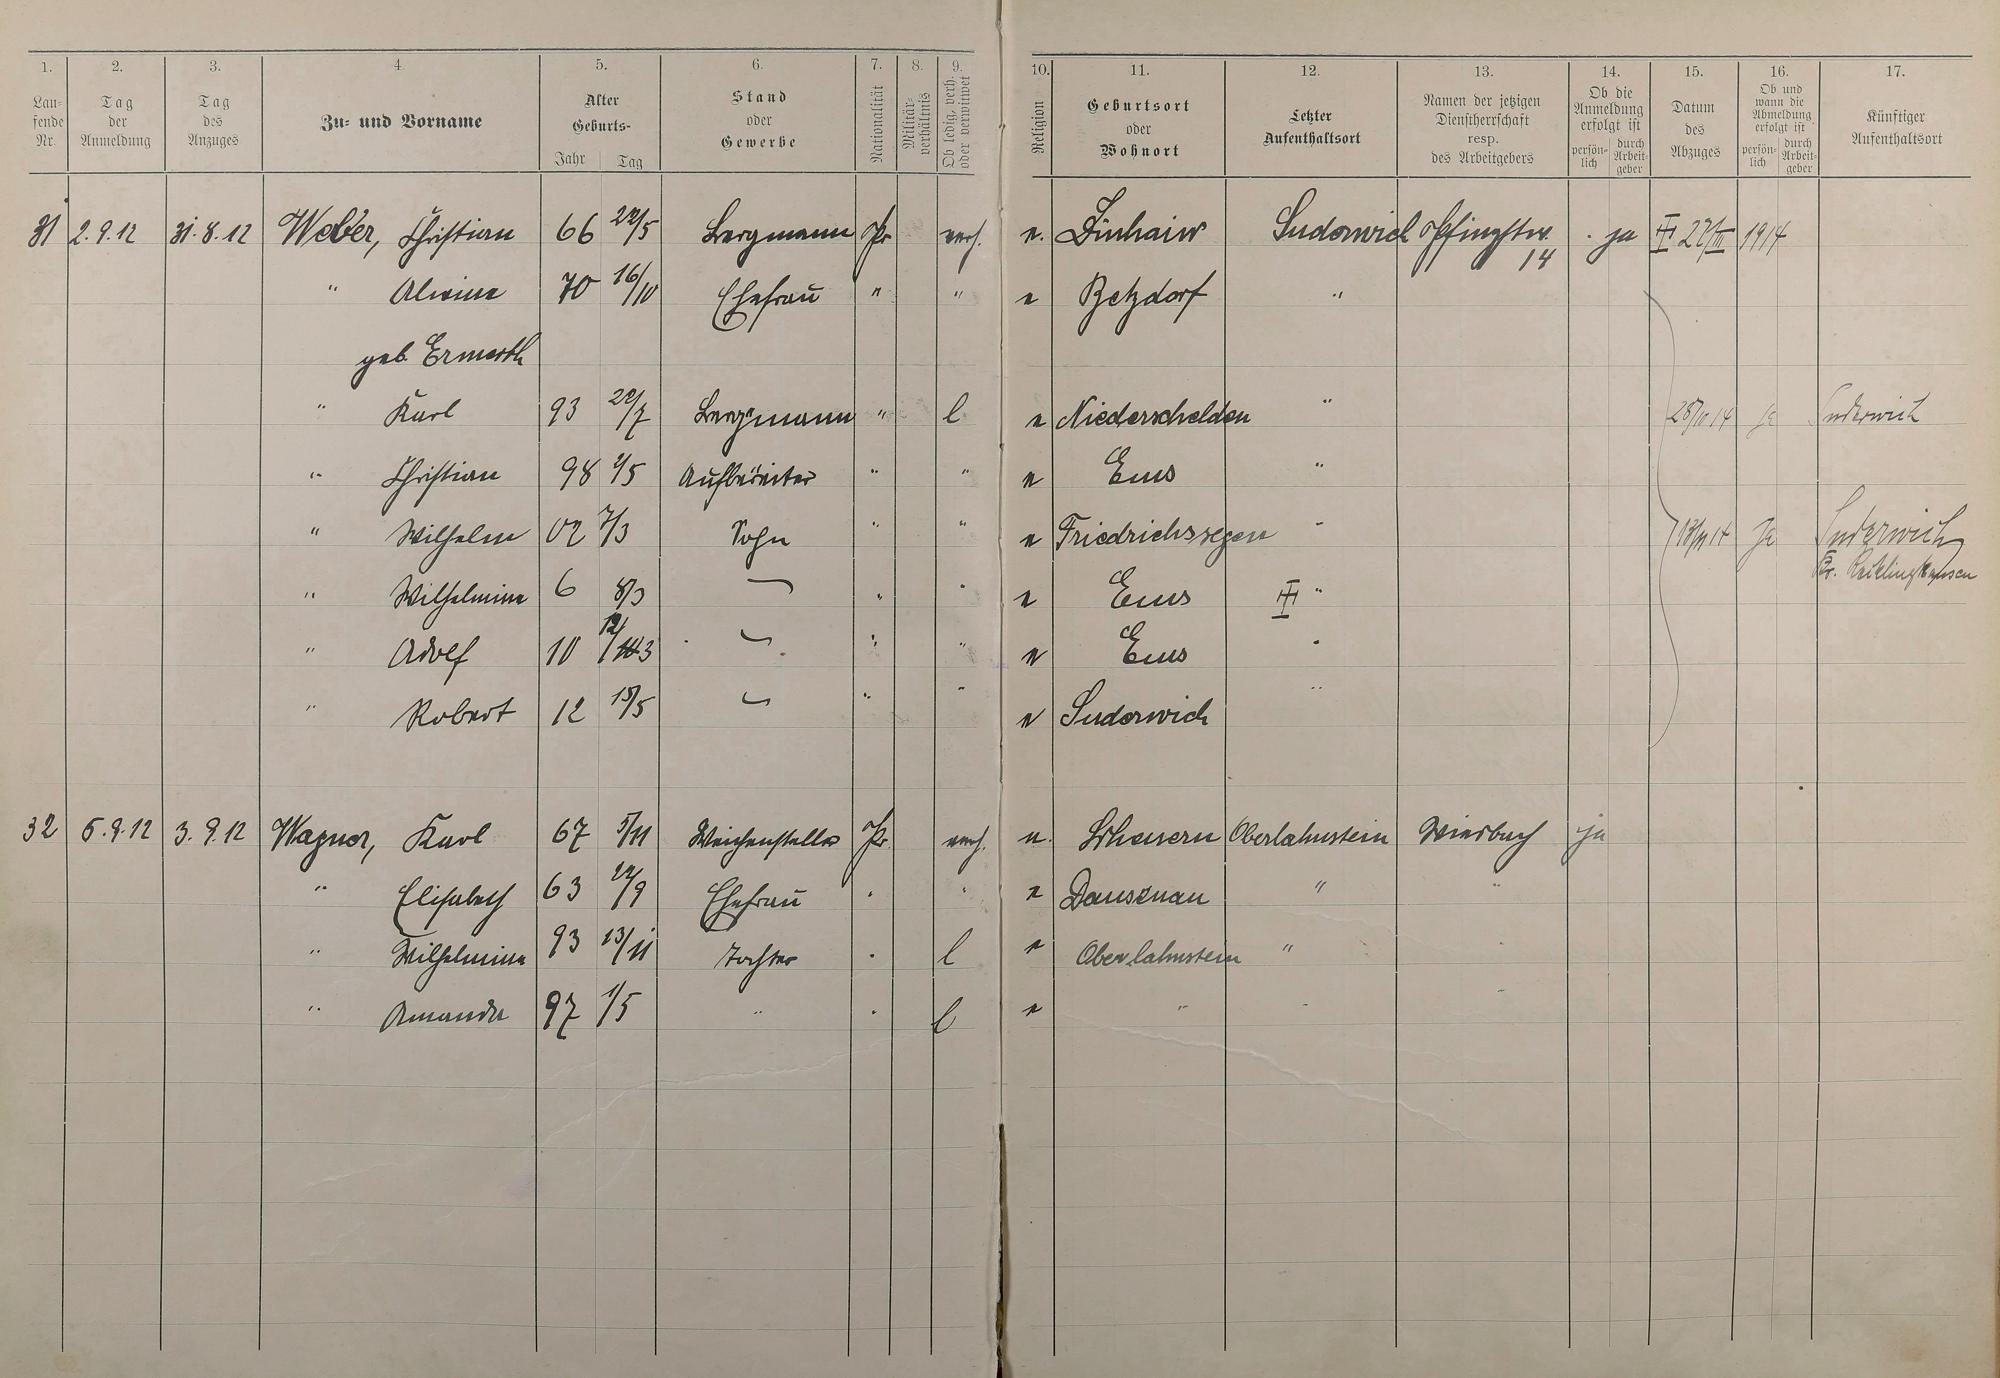 1. 2. 3. 4. 5. 6. 7. 8. 9. 10. 11. 12. 13. 14. 15. 16. 17.
Lau-
fende
Nr.
Tag
der
Anmeldung
Tag
des
Anzuges
Zu- und Vorname
Alter
Geburts-
Jahr Tag
Stand
oder
Gewerbe
Nationalität
Militär-
verhältnis
Ob ledig, verh.
oder verwitwet
Religion
Geburtsort
oder
Wohnort
Letzter
Aufenthaltsort
Namen der jetzigen
Dienstherrschaft
resp.
des Arbeitgebers
Ob die
Anmeldung
erfolgt ist
persön-
lich
durch
Arbeit-
geber
Datum
des
Abzuges
Ob und
wann die
Abmeldung
erfolgt ist
persön-
lich
durch
Arbeit-
geber
Künftiger
Aufenthaltsort
31 2.9.12 31.8.12 Weber, Christian 66 22/5 Bergmann Pr verh. e. Suderwich Pfingstw. ja 1914
14
" Alwine 70 16/10 Ehefrau " " e Betzdorf "
geb. Ermerth
" Karl 93 22/7 Bergmann " l e Niederschelden " ja Suderwich
" Christian 98 1/5 " " e Ems "
" Wilhelm 02 7/3 Sohn " " e Friedrichssegen " ja Suderwich
Kr. Recklinghausen
" Wilhelmine 6 8/3 " " e Ems "
" Adolf 10 12/3 " " e Ems "
" Robert 12 15/5 " " e Suderwich "
32 5.9.12 3.9.12 Wagner, Karl 67 5/11 Weichensteller Pr. verh. e. Scheuern Oberlahnstein Wiesbach ja
" Elisabeth 63 22/9 Ehefrau " " e Dausenau " "
" Wilhelmine 93 13/11 Tochter " l e Oberlahnstein " "
" Amanda 97 1/5 " " l e " " "